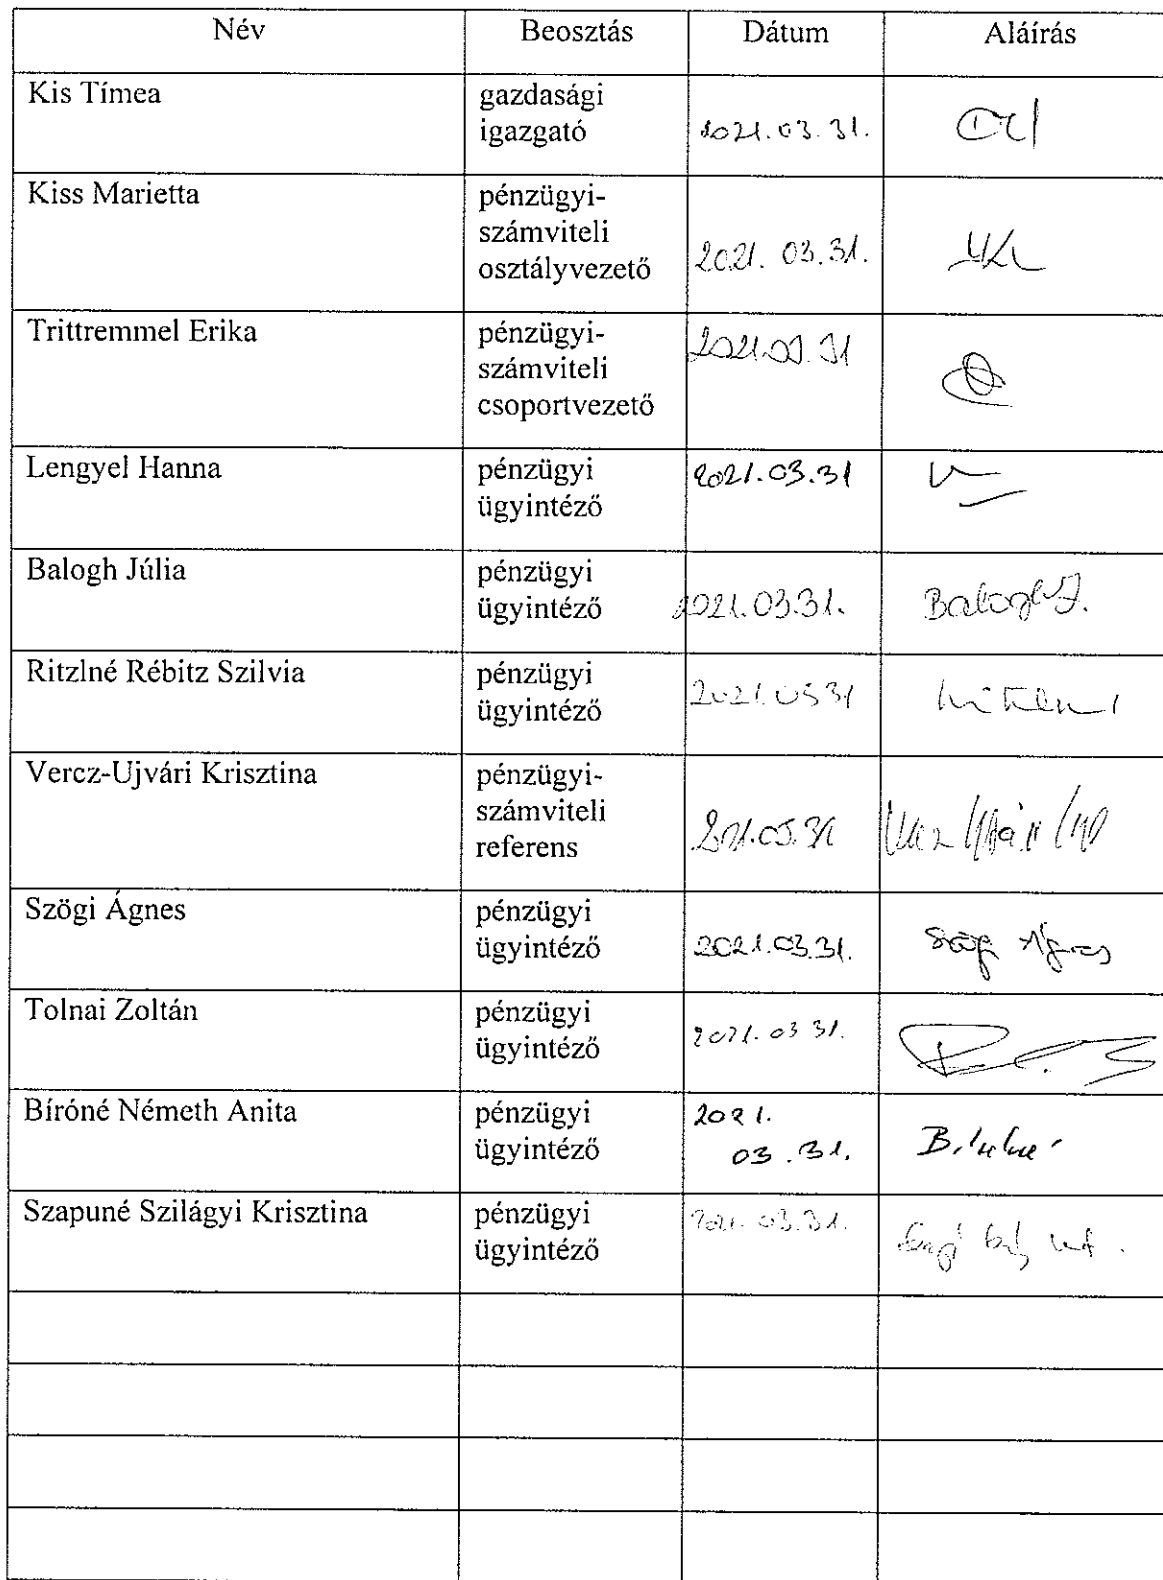 Név Beosztás Dátum Aláírás
Kis Tímea gazdasági
igazgató 2021.03.31.
Kiss Marietta pénzügyi-
számviteli
osztályvezető 2021. 03.31.
Trittremmel Erika pénzügyi-
számviteli
csoportvezető 2021.03.31
Lengyel Hanna pénzügyi
ügyintéző 2021.03.31
Balogh Júlia pénzügyi
ügyintéző 2021.03.31. Balogh J.
Ritzlné Rébitz Szilvia pénzügyi
ügyintéző 2021.03 31
Vercz-Ujvári Krisztina pénzügyi-
számviteli
referens 2021.03.31
Szögi Ágnes pénzügyi
ügyintéző 2021.03.31. Szögi Ágnes
Tolnai Zoltán pénzügyi
ügyintéző 2021.03 31.
Bíróné Németh Anita pénzügyi
ügyintéző
2021.
03.31.
Szapuné Szilágyi Krisztina pénzügyi
ügyintéző 2021.03.31.